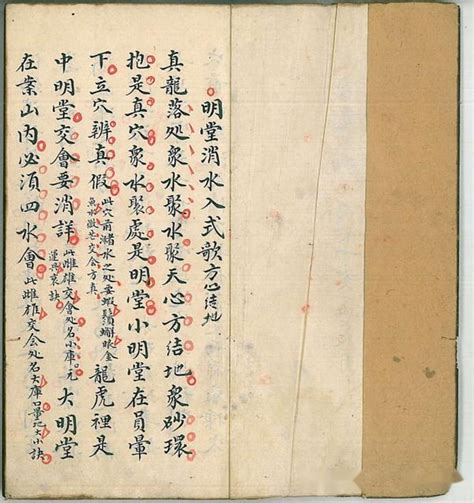 明堂消水入式歌方心结地
真龍落处眾水聚水聚天心方结地眾砂環
抱是真穴眾水聚處是明堂小明堂在員暈
下立穴辨真假此穴前諸水之处要蝦鬚蠏眼金魚水微茫交会方真龍虎裡是
中明堂交會要消詳此雌雄交會处名小庫口元運興衰訣大明堂
在案山內必湏四水會此雌雄交会处名大庫口量地大小訣